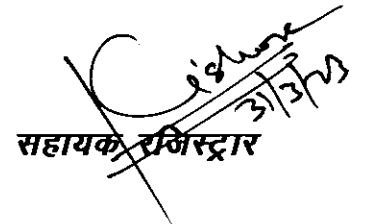 Kishore
31/3/23
सहायक रजिस्ट्रार